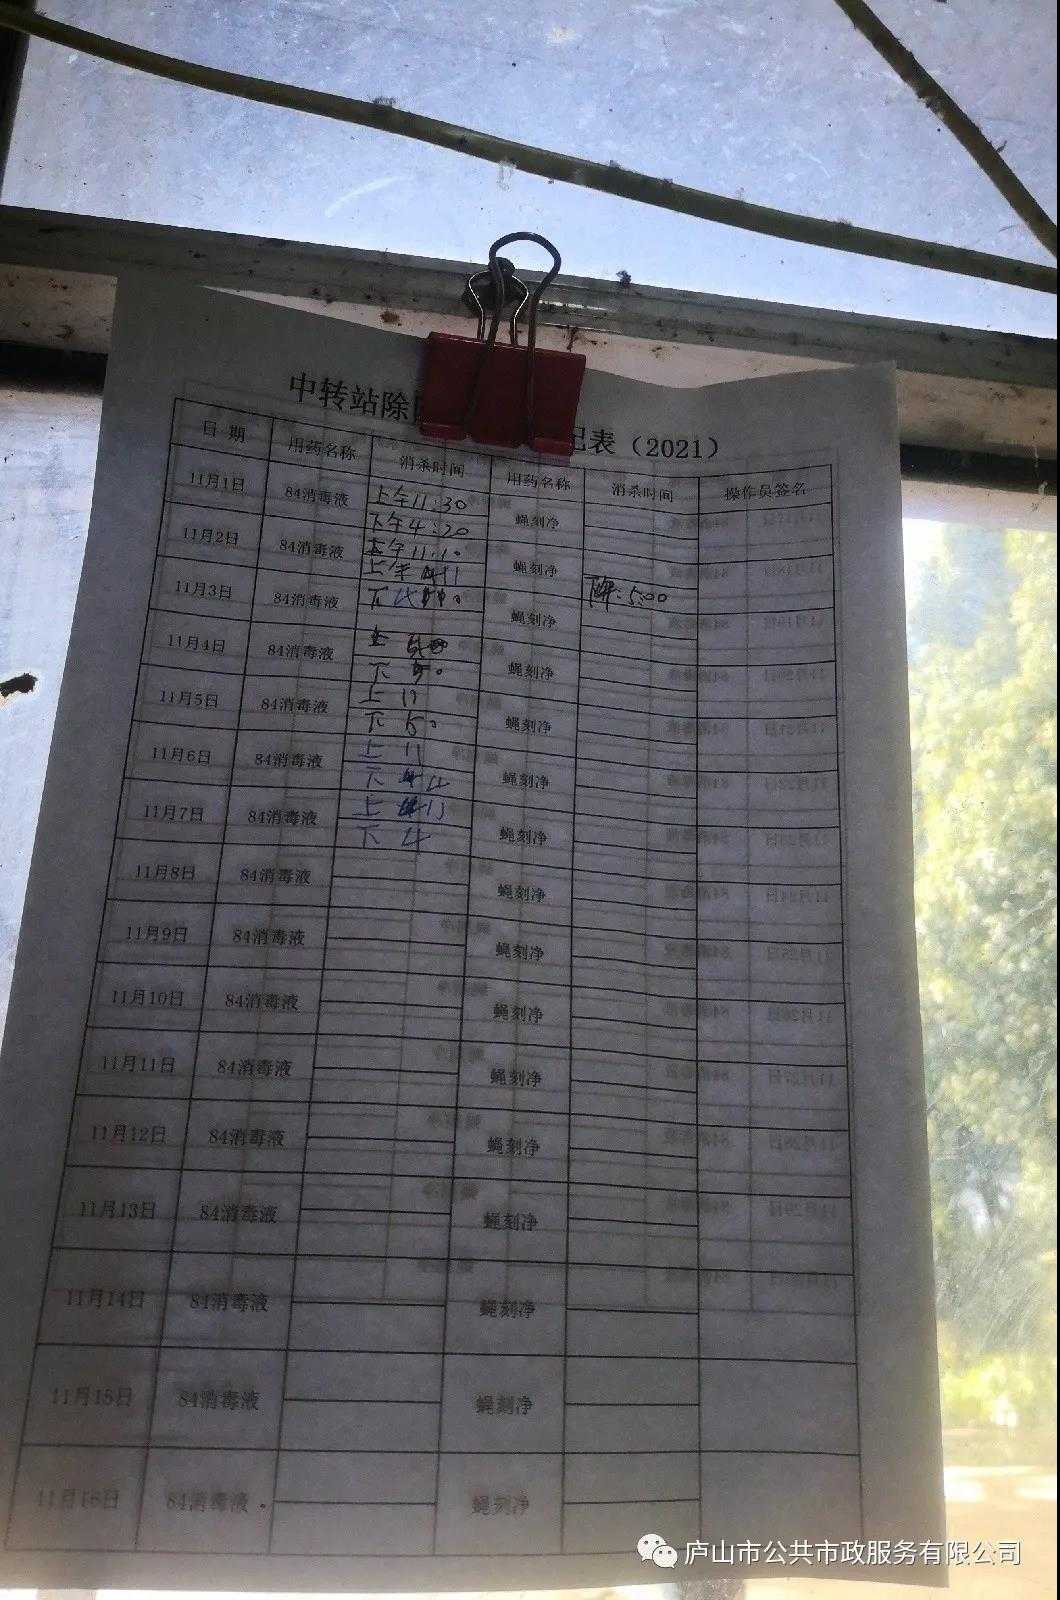 中转站除
记表（2021）
日期 用药名称 消杀时间 用药名称 消杀时间 操作员签名
11月1日 84消毒液 上午11:30 蝇刻净
下午4:20
11月2日 84消毒液 上午11:10 蝇刻净
11月3日 84消毒液 下 蝇刻净 5:00
11月4日 84消毒液 上 蝇刻净
下
11月5日 84消毒液 上 11 蝇刻净
下 5
11月6日 84消毒液 上 11 蝇刻净
下 4
11月7日 84消毒液 上 11 蝇刻净
下 4
11月8日 84消毒液 蝇刻净
11月9日 84消毒液 蝇刻净
11月10日 84消毒液 蝇刻净
11月11日 84消毒液 蝇刻净
11月12日 84消毒液 蝇刻净
11月13日 84消毒液 蝇刻净
11月14日 84消毒液 蝇刻净
11月15日 84消毒液 蝇刻净
11月16日 84消毒液 蝇刻净
庐山市公共市政服务有限公司